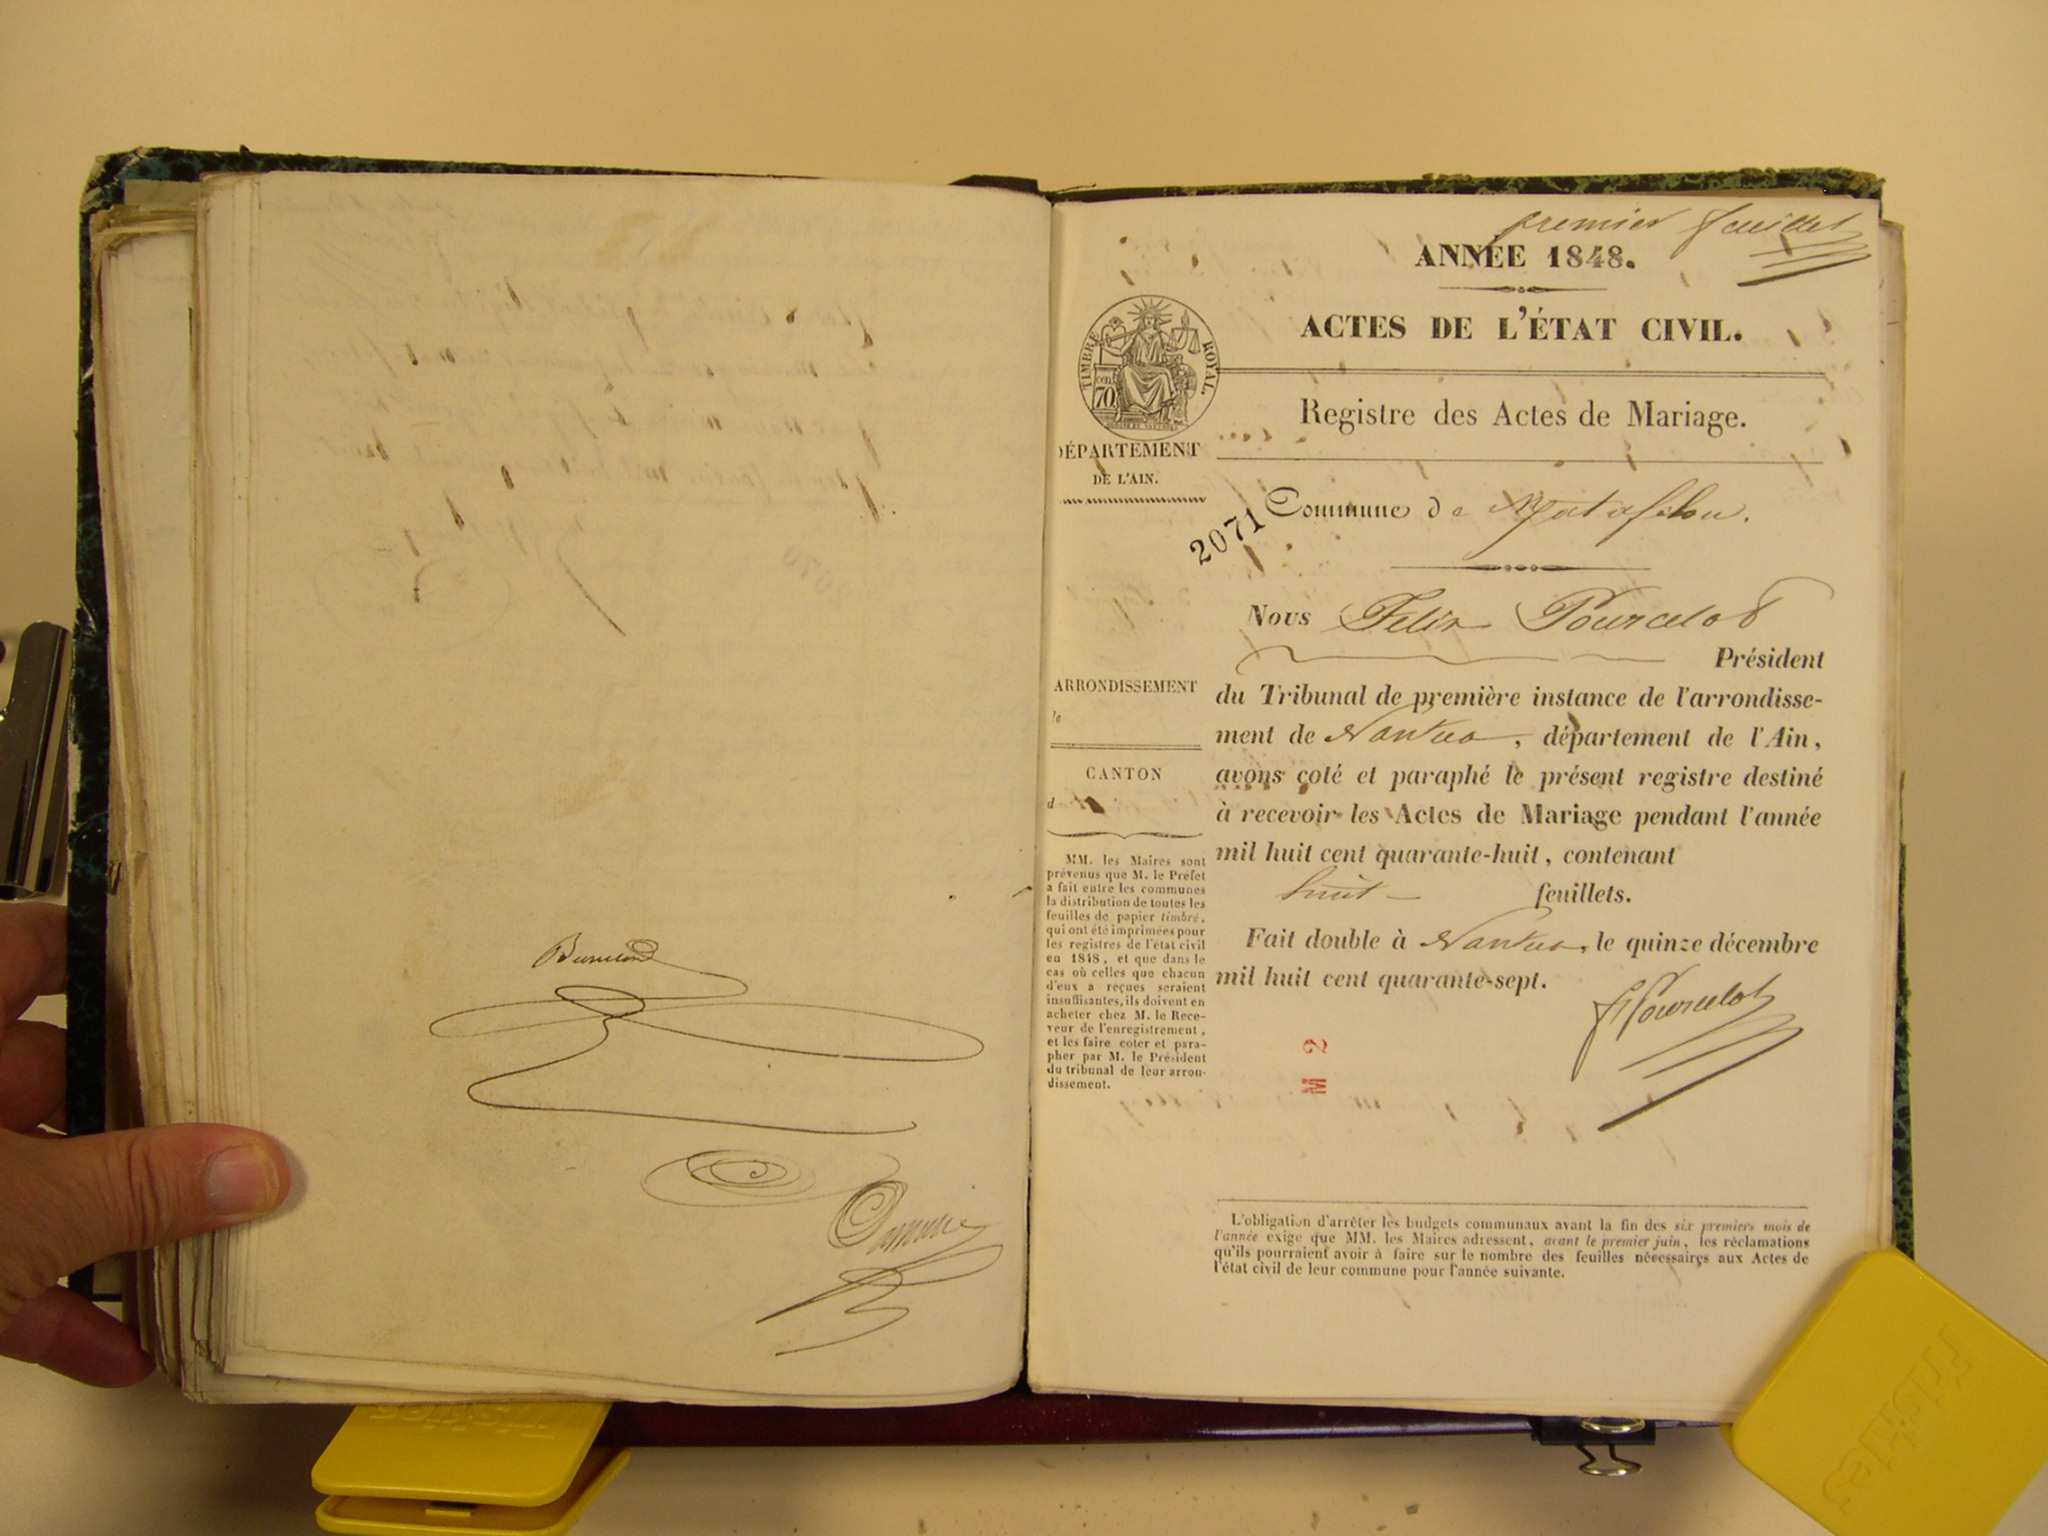 premier feuillet
ANNÉE 1848.
ACTES DE L'ÉTAT CIVIL.
TIMBRE ROYAL.
cen
70
Registre des Actes de Mariage.
DÉPARTEMENT
DE L'AIN.
2071
Commune de Matafelon.
Nous Félix Pourcelot
Président
du Tribunal de première instance de l'arrondisse-
ment de Nantua, département de l'Ain,
avons coté et paraphé le présent registre destiné
à recevoir les Actes de Mariage pendant l'année
mil huit cent quarante-huit, contenant
huit feuillets.
Fait double à Nantua, le quinze décembre
mil huit cent quarante-sept.
FPourcelot
M 2
ARRONDISSEMENT
de
CANTON
d
MM. les Maires sont
prévenus que M. le Préfet
a fait entre les communes
la distribution de toutes les
feuilles de papier timbré,
qui ont été imprimées pour
les registres de l'état civil
en 1848, et que dans le
cas où celles que chacun
d'eux a reçues seraient
insuffisantes, ils doivent en
acheter chez M. le Rece-
veur de l'enregistrement,
et les faire coter et para-
pher par M. le Président
du tribunal de leur arron-
dissement.
L'obligation d'arrêter les budgets communaux avant la fin des six premiers mois de
l'année exige que MM. les Maires adressent, avant le premier juin, les réclamations
qu'ils pourraient avoir à faire sur le nombre des feuilles nécessaires aux Actes de
l'état civil de leur commune pour l'année suivante.